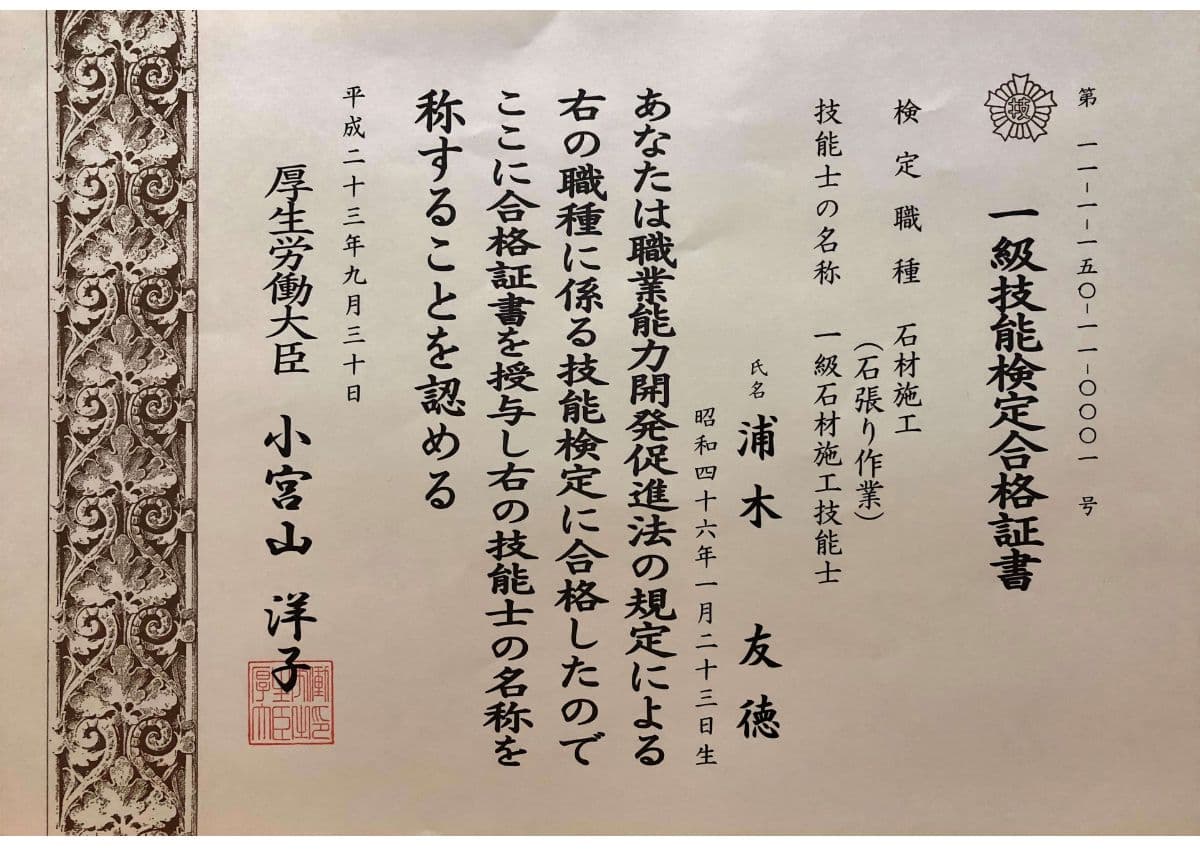 第一一-一-一五〇-一一-〇〇〇一号
一級技能検定合格証書
検定職種 石材施工
(石張り作業)
技能士の名称 一級石材施工技能士
氏名 浦木 友徳
昭和四十六年一月二十三日生
あなたは職業能力開発促進法の規定による
右の職種に係る技能検定に合格したので
ここに合格証書を授与し右の技能士の名称を
称することを認める
平成二十三年九月三十日
厚生労働大臣 小宮山 洋子